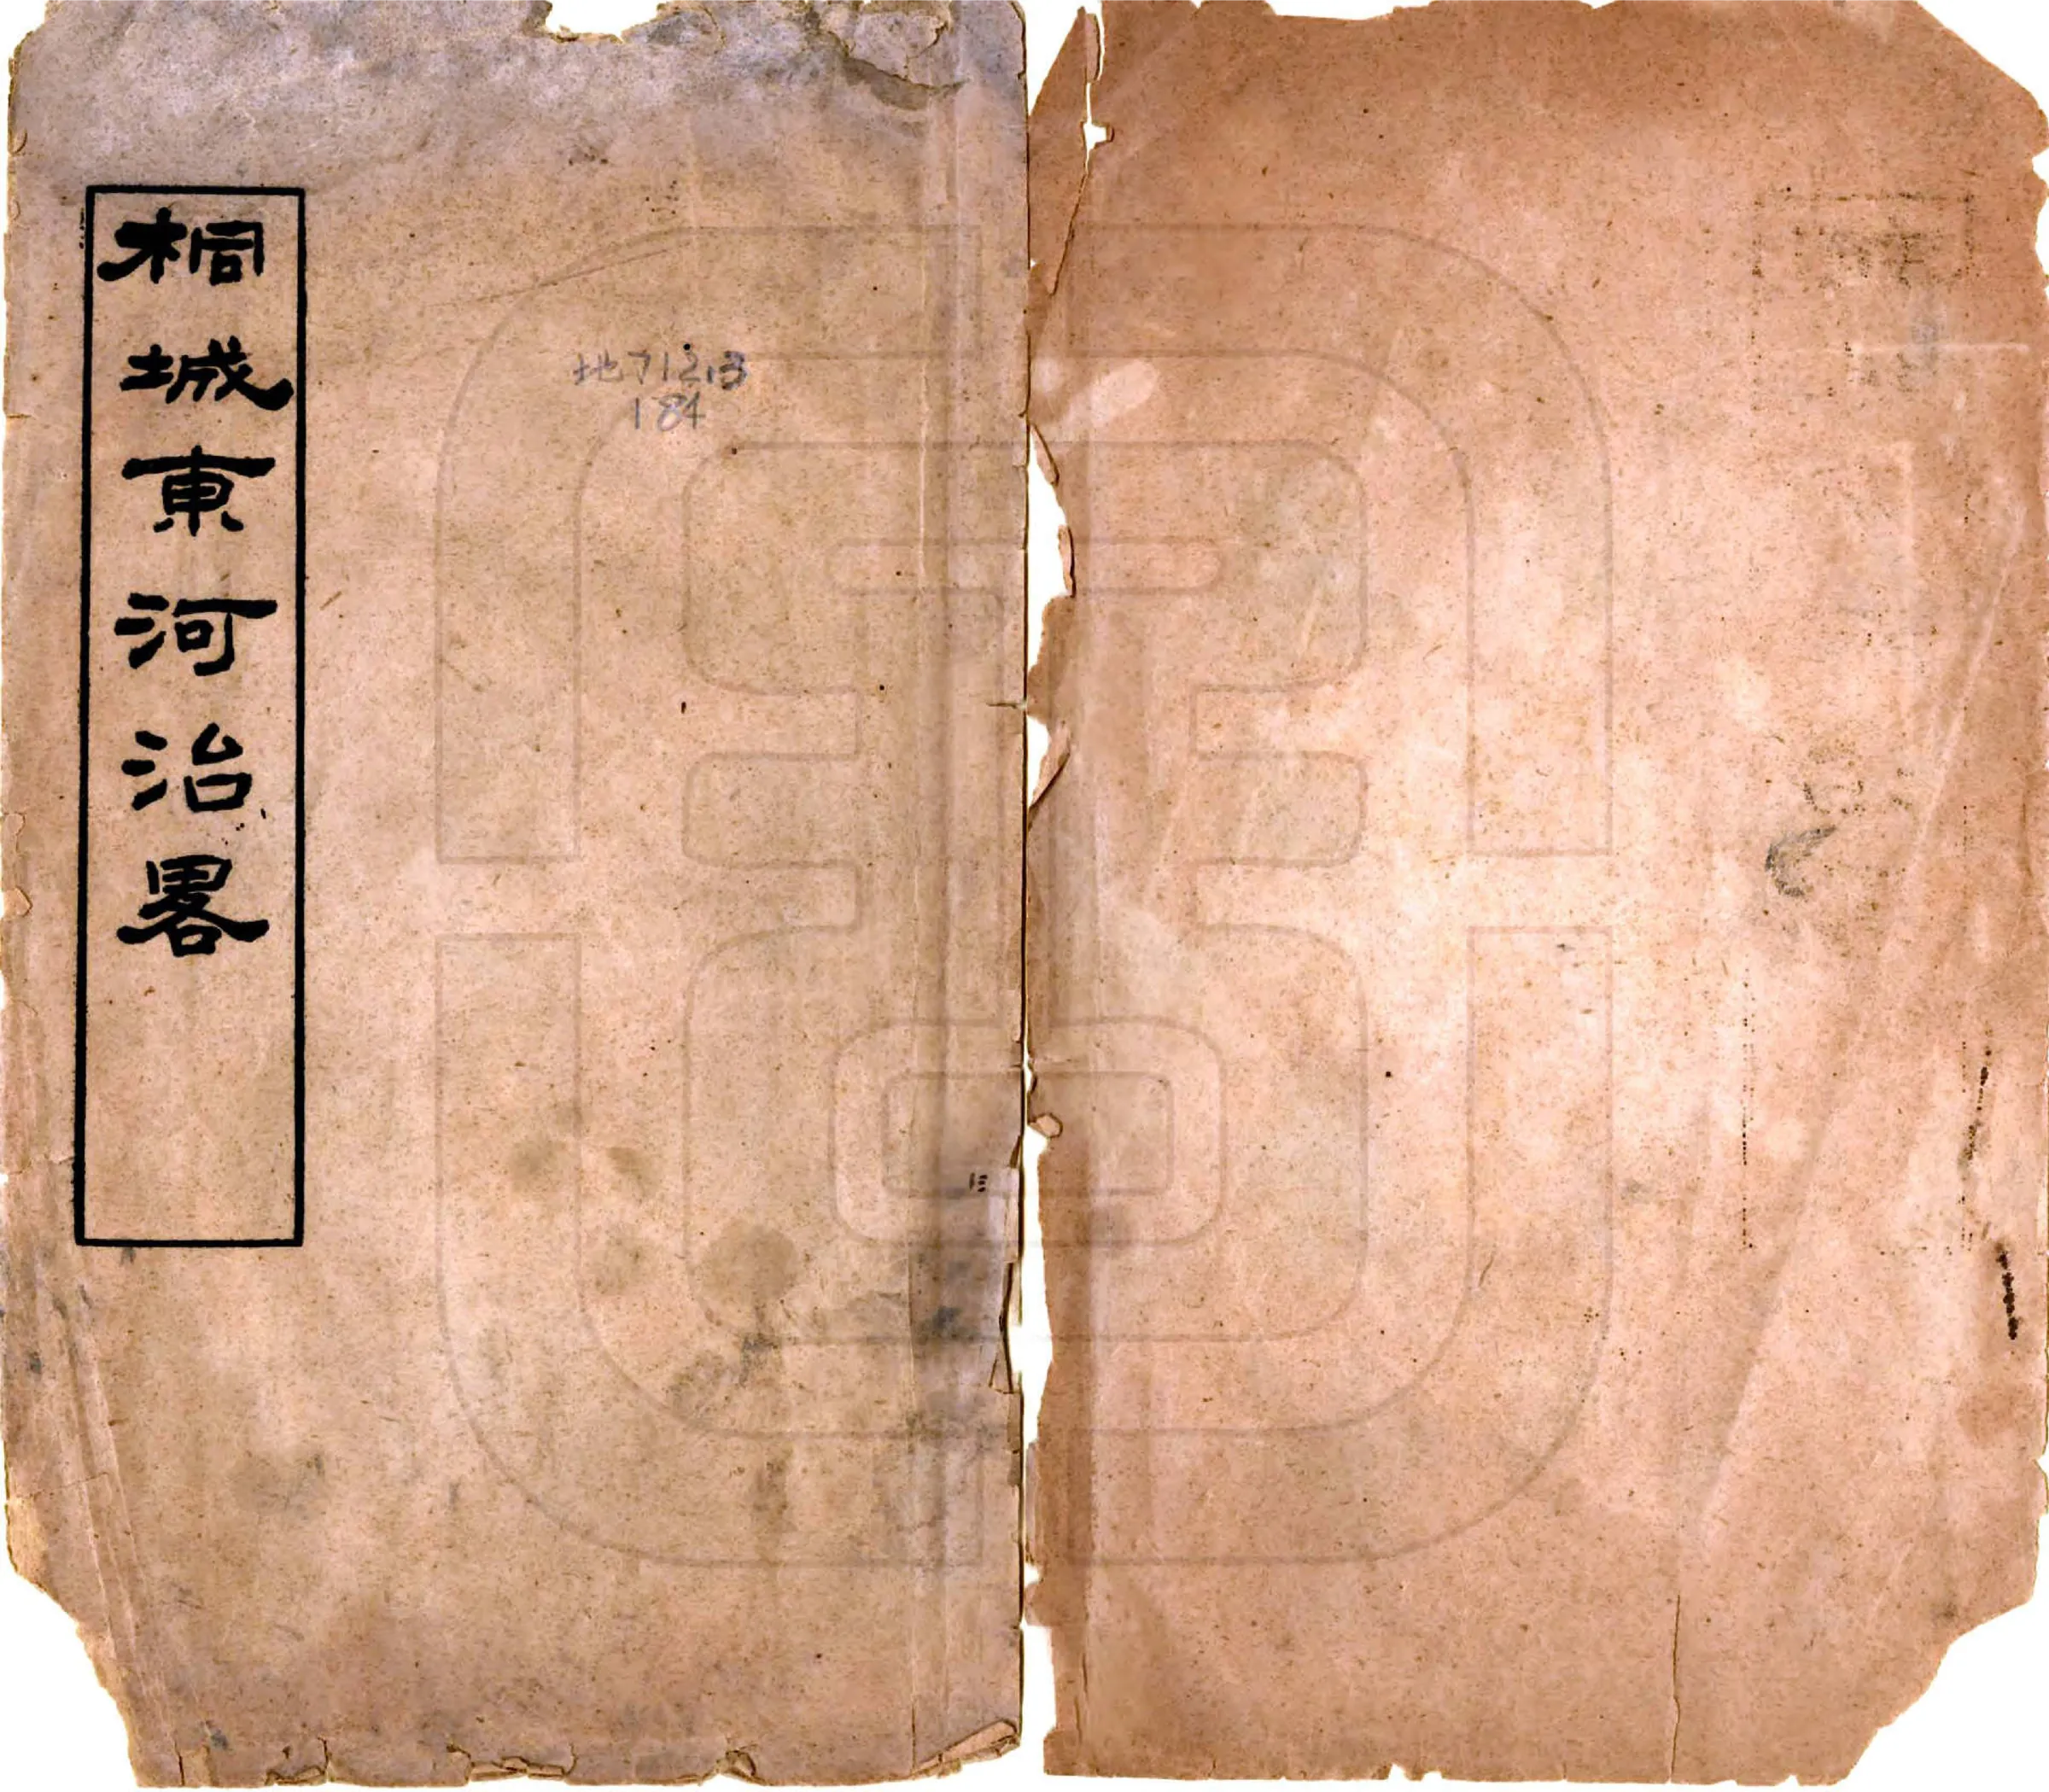 桐城東河治畧
地712.3
184